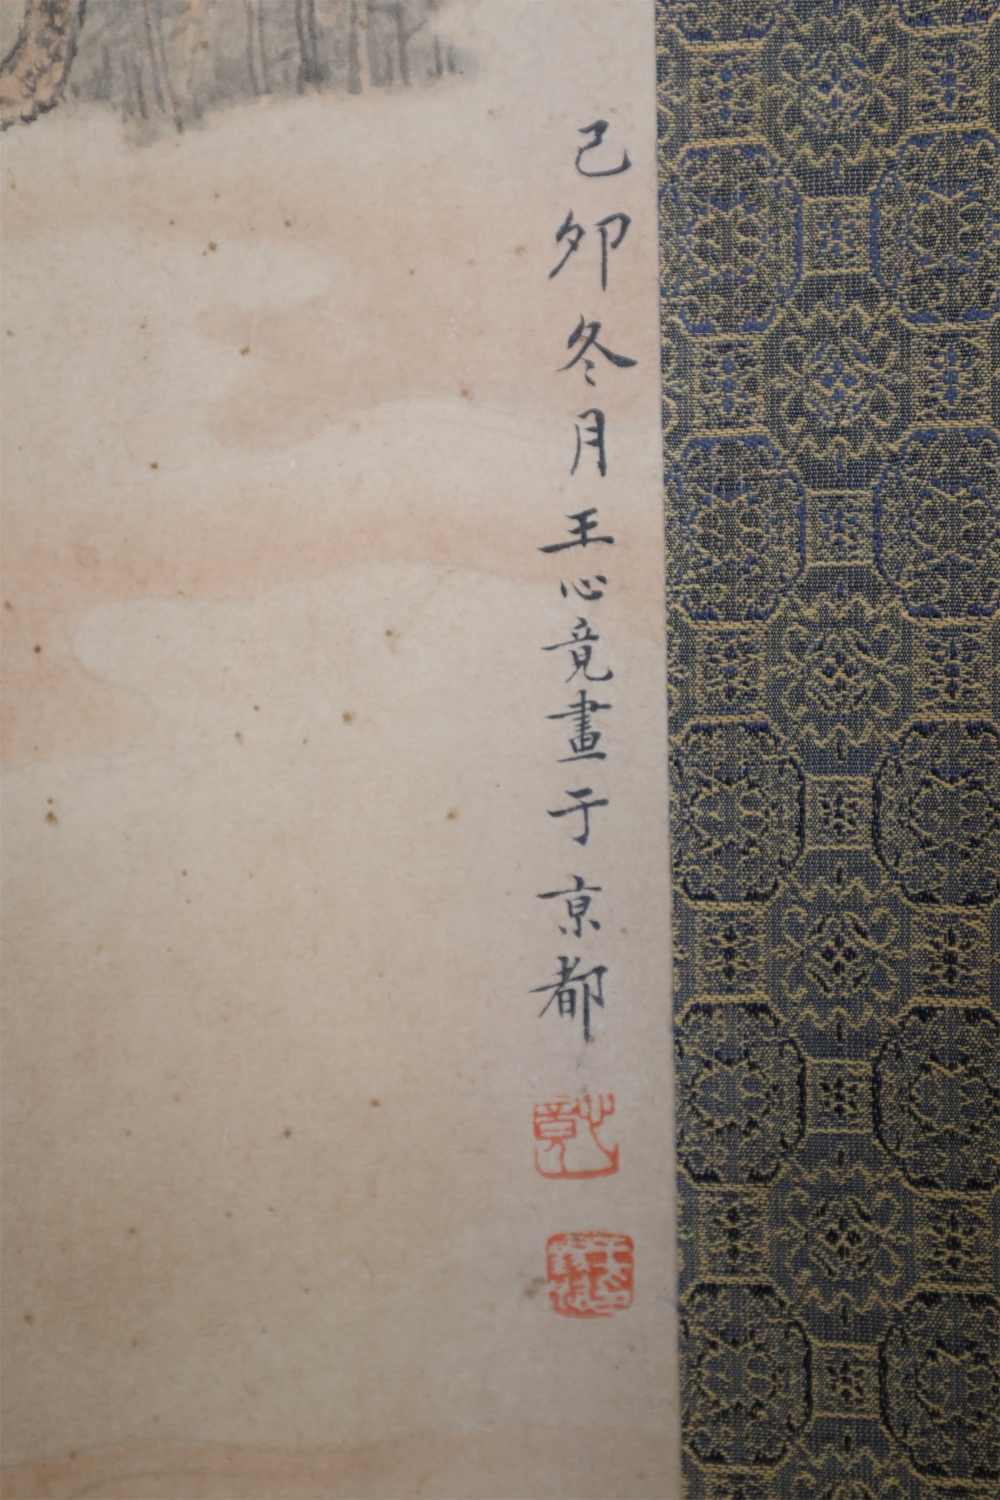 己卯冬月王心竟畫于京都
心竟